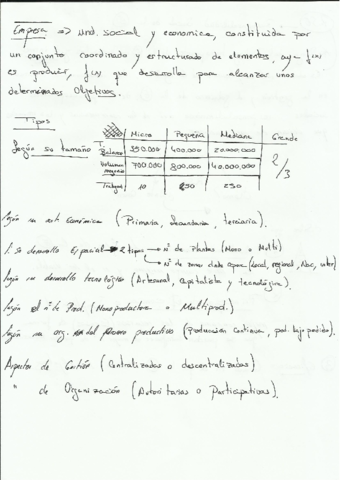 Empresa => Und. social y economica, constituida por
un conjunto coordinado y estructurado de elementos, cuya f(x)
es producir, f(x) que desarrolla para alcanzar unos
determinados Objetivos.
Tipos
Según su tamaño
Micro Pequeña Mediana Grande
T. Balance 350.000 400.000 20.000.000 2/3
Volumen negocio 700.000 800.000 40.000.000
Trabajad 10 50 250
Según su act. Económica (Primaria, Secundaria, terciaria).
S. su desarrollo Espacial 2 tipos Nº de Plantas (Mono o Multi)
Nº de zonas donde opera (Local, regional, Nac, inter)
Según su desarrollo tecnológico (Artesanal, Capitalista y tecnológica).
Según el nº de Prod. (Monoproductora o Multiprod.)
Según su org. del proceso productivo (Produccion Continua, prod. bajo pedido).
Aspectos de Gestión (Centralizados o descentralizados)
" de Organización (Autoritarias o Participativas).